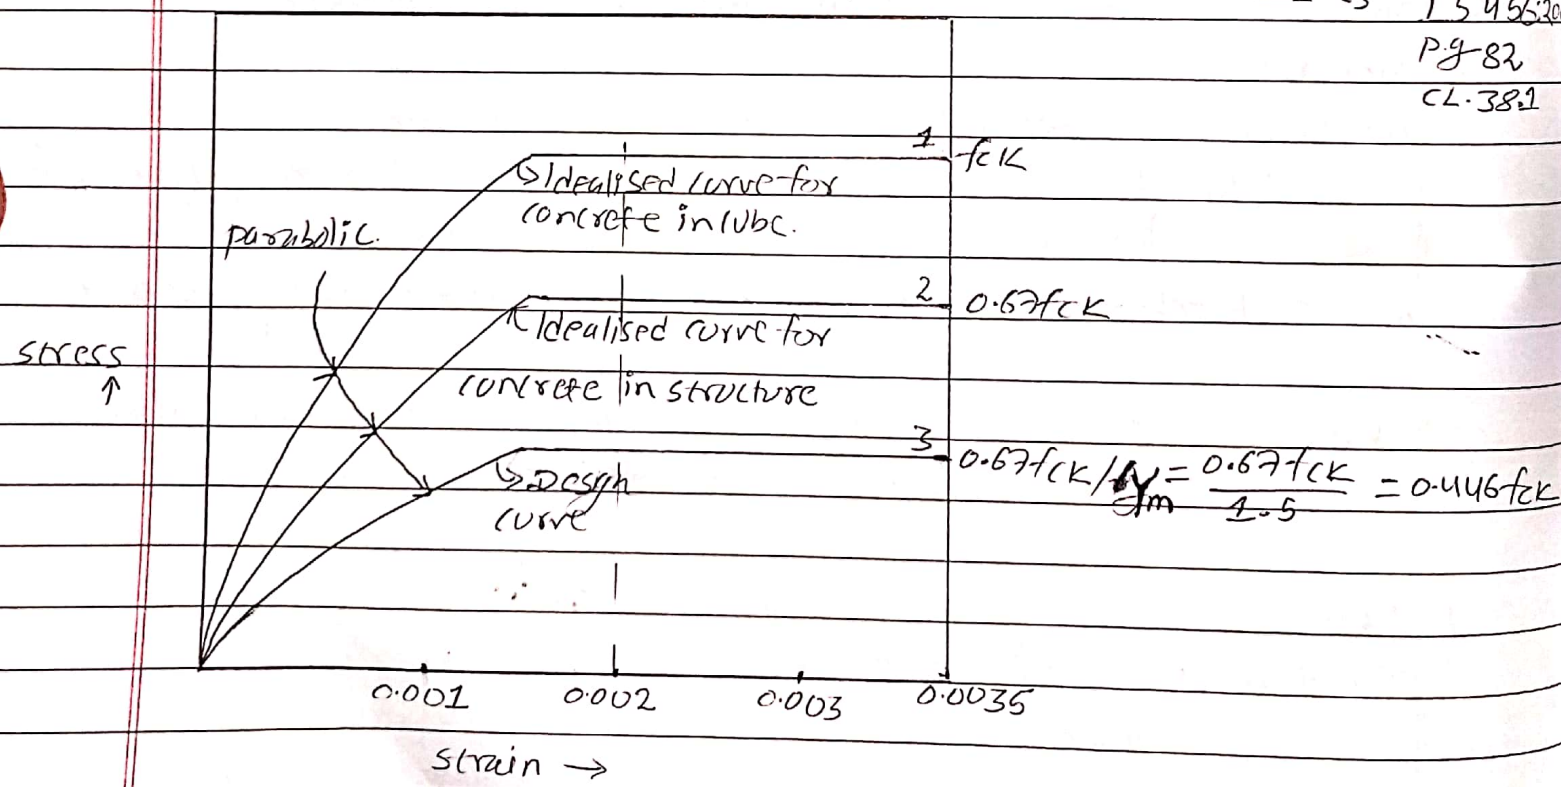 IS 456:20
P.g-82
CL.38.1
1
fck
Idealised curve for
concrete in cube.
parabolic.
2
0.67fck
Idealised curve for
concrete in structure
stress
↑
3
0.67fck/γm = 0.67fck / 1.5 = 0.446fck
Design
curve
0.001 0.002 0.003 0.0035
strain →